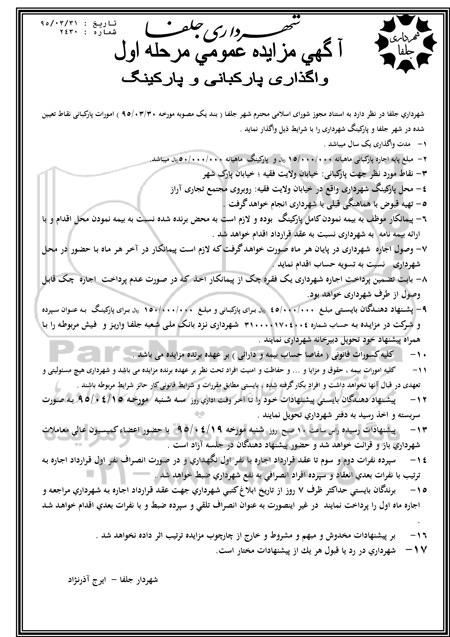 شهرداری جلفا
تاریخ : ۹۵/۰۳/۳۱
شماره : ۲۴۳۰
شهرداری
جلفا
آگهي مزايده عمومي مرحله اول
واگذاری پارکبانی و پارکینگ
شهرداری جلفا در نظر دارد به استناد مجوز شورای اسلامی محترم شهر جلفا ( بند یک مصوبه مورخه ۹۵/۰۳/۳۰ ) امورات پارکبانی نقاط تعیین
شده در شهر جلفا و پارکینگ شهرداری را با شرایط ذیل واگذار نماید .
۱- مدت واگذاری یک سال میباشد .
۲- مبلغ پایه اجاره پارکبانی ماهیانه ۱۵/۰۰۰/۰۰۰ ریال و پارکینگ ماهیانه ۵۰/۰۰۰/۰۰۰ ریال میباشد.
۳- نقاط مورد نظر جهت پارکبانی: خیابان ولایت فقیه ؛ خیابان پارک شهر
۴- محل پارکینگ شهرداری واقع در خیابان ولایت فقیه: روبروی مجتمع تجاری آراز
۵- تهیه قبوض با هماهنگی قبلی با شهرداری انجام خواهد گرفت
۶- پیمانکار موظف به بیمه نمودن کامل پارکینگ بوده و لازم است به محض برنده شده نسبت به بیمه نمودن محل اقدام و با
ارائه بیمه نامه به شهرداری نسبت به عقد قرارداد اقدام خواهد شد .
۷- وصول اجاره شهرداری در پایان هر ماه صورت خواهد گرفت که لازم است پیمانکار در آخر هر ماه با حضور در محل
شهرداری نسبت به تسویه حساب اقدام نماید
۸- بابت تضمین پرداخت اجاره شهرداری یک فقره چک از پیمانکار اخذ که در صورت عدم پرداخت اجاره چک قابل
وصول از طرف شهرداری خواهد بود.
۹- پشنهاد دهندگان بایستی مبلغ ۴۵/۰۰۰/۰۰۰ ریال برای پارکبانی و مبلغ ۱۵۰/۰۰۰/۰۰۰ ریال برای پارکینگ به عنوان سپرده
و شرکت در مزایده به حساب شماره ۳۱۰۰۰۰۱۷۰۴۰۰۴ شهرداری نزد بانک ملی شعبه جلفا واریز و فیش مربوطه را با
همراه پیشنهاد خود تحویل دبیرخانه شهرداری نمایند .
۱۰- کلیه کسورات قانونی ( مفاصا حساب بیمه و دارائی ) بر عهده برنده مزایده می باشد .
۱۱- کلیه امورات بیمه ، حقوق و مزایا و ... و حفاظت و امنیت افراد تحت نظر بر عهده برنده مزایده می باشد و شهرداری هیچ مسئولیتی و
تعهدی در قبال آنها نخواهد داشت و افراد بکار گرفته شده ، بایستی مطابق مقررات و شرایط قانونی کار حائز شرایط مربوطه باشند .
۱۲- پیشنهاد دهندگان بایستی پیشنهادات خود را تا آخر وقت اداری روز سه شنبه مورخه ۹۵/۰۴/۱۵ به صورت
سربسته و اخذ رسید به دفتر شهرداری تحویل نمایند .
۱۳- پیشنهادات رسیده راس ساعت ۱۰ صبح روز شنبه مورخه ۹۵/۰۴/۱۹ با حضور اعضاء کمیسیون عالی معاملات
شهرداری باز و قرائت خواهد شد و حضور پیشنهاد دهندگان در جلسه آزاد است .
۱۴- سپرده نفرات دوم و سوم تا عقد قرارداد اجاره با نفر اول نگهداری و در صورت انصراف نفر اول قرارداد اجاره به
ترتیب با نفرات بعدی انعقاد و سپرده افراد انصرافی به نفع شهرداری ضبط خواهد شد .
۱۵- برندگان بایستی حداکثر ظرف ۷ روز از تاریخ ابلاغ کتبی شهرداری جهت عقد قرارداد اجاره به شهرداری مراجعه و
اجاره ماه اول را پرداخت نمایند در غیر اینصورت به عنوان انصراف تلقی و سپرده ضبط و با نفرات بعدی اقدام خواهد شد
.
۱۶- بر پیشنهادات مخدوش و مبهم و مشروط و خارج از چارچوب مزایده ترتیب اثر داده نخواهد شد .
۱۷- شهرداری در رد یا قبول هر یک از پیشنهادات مختار است.
شهردار جلفا - ایرج آذرنژاد